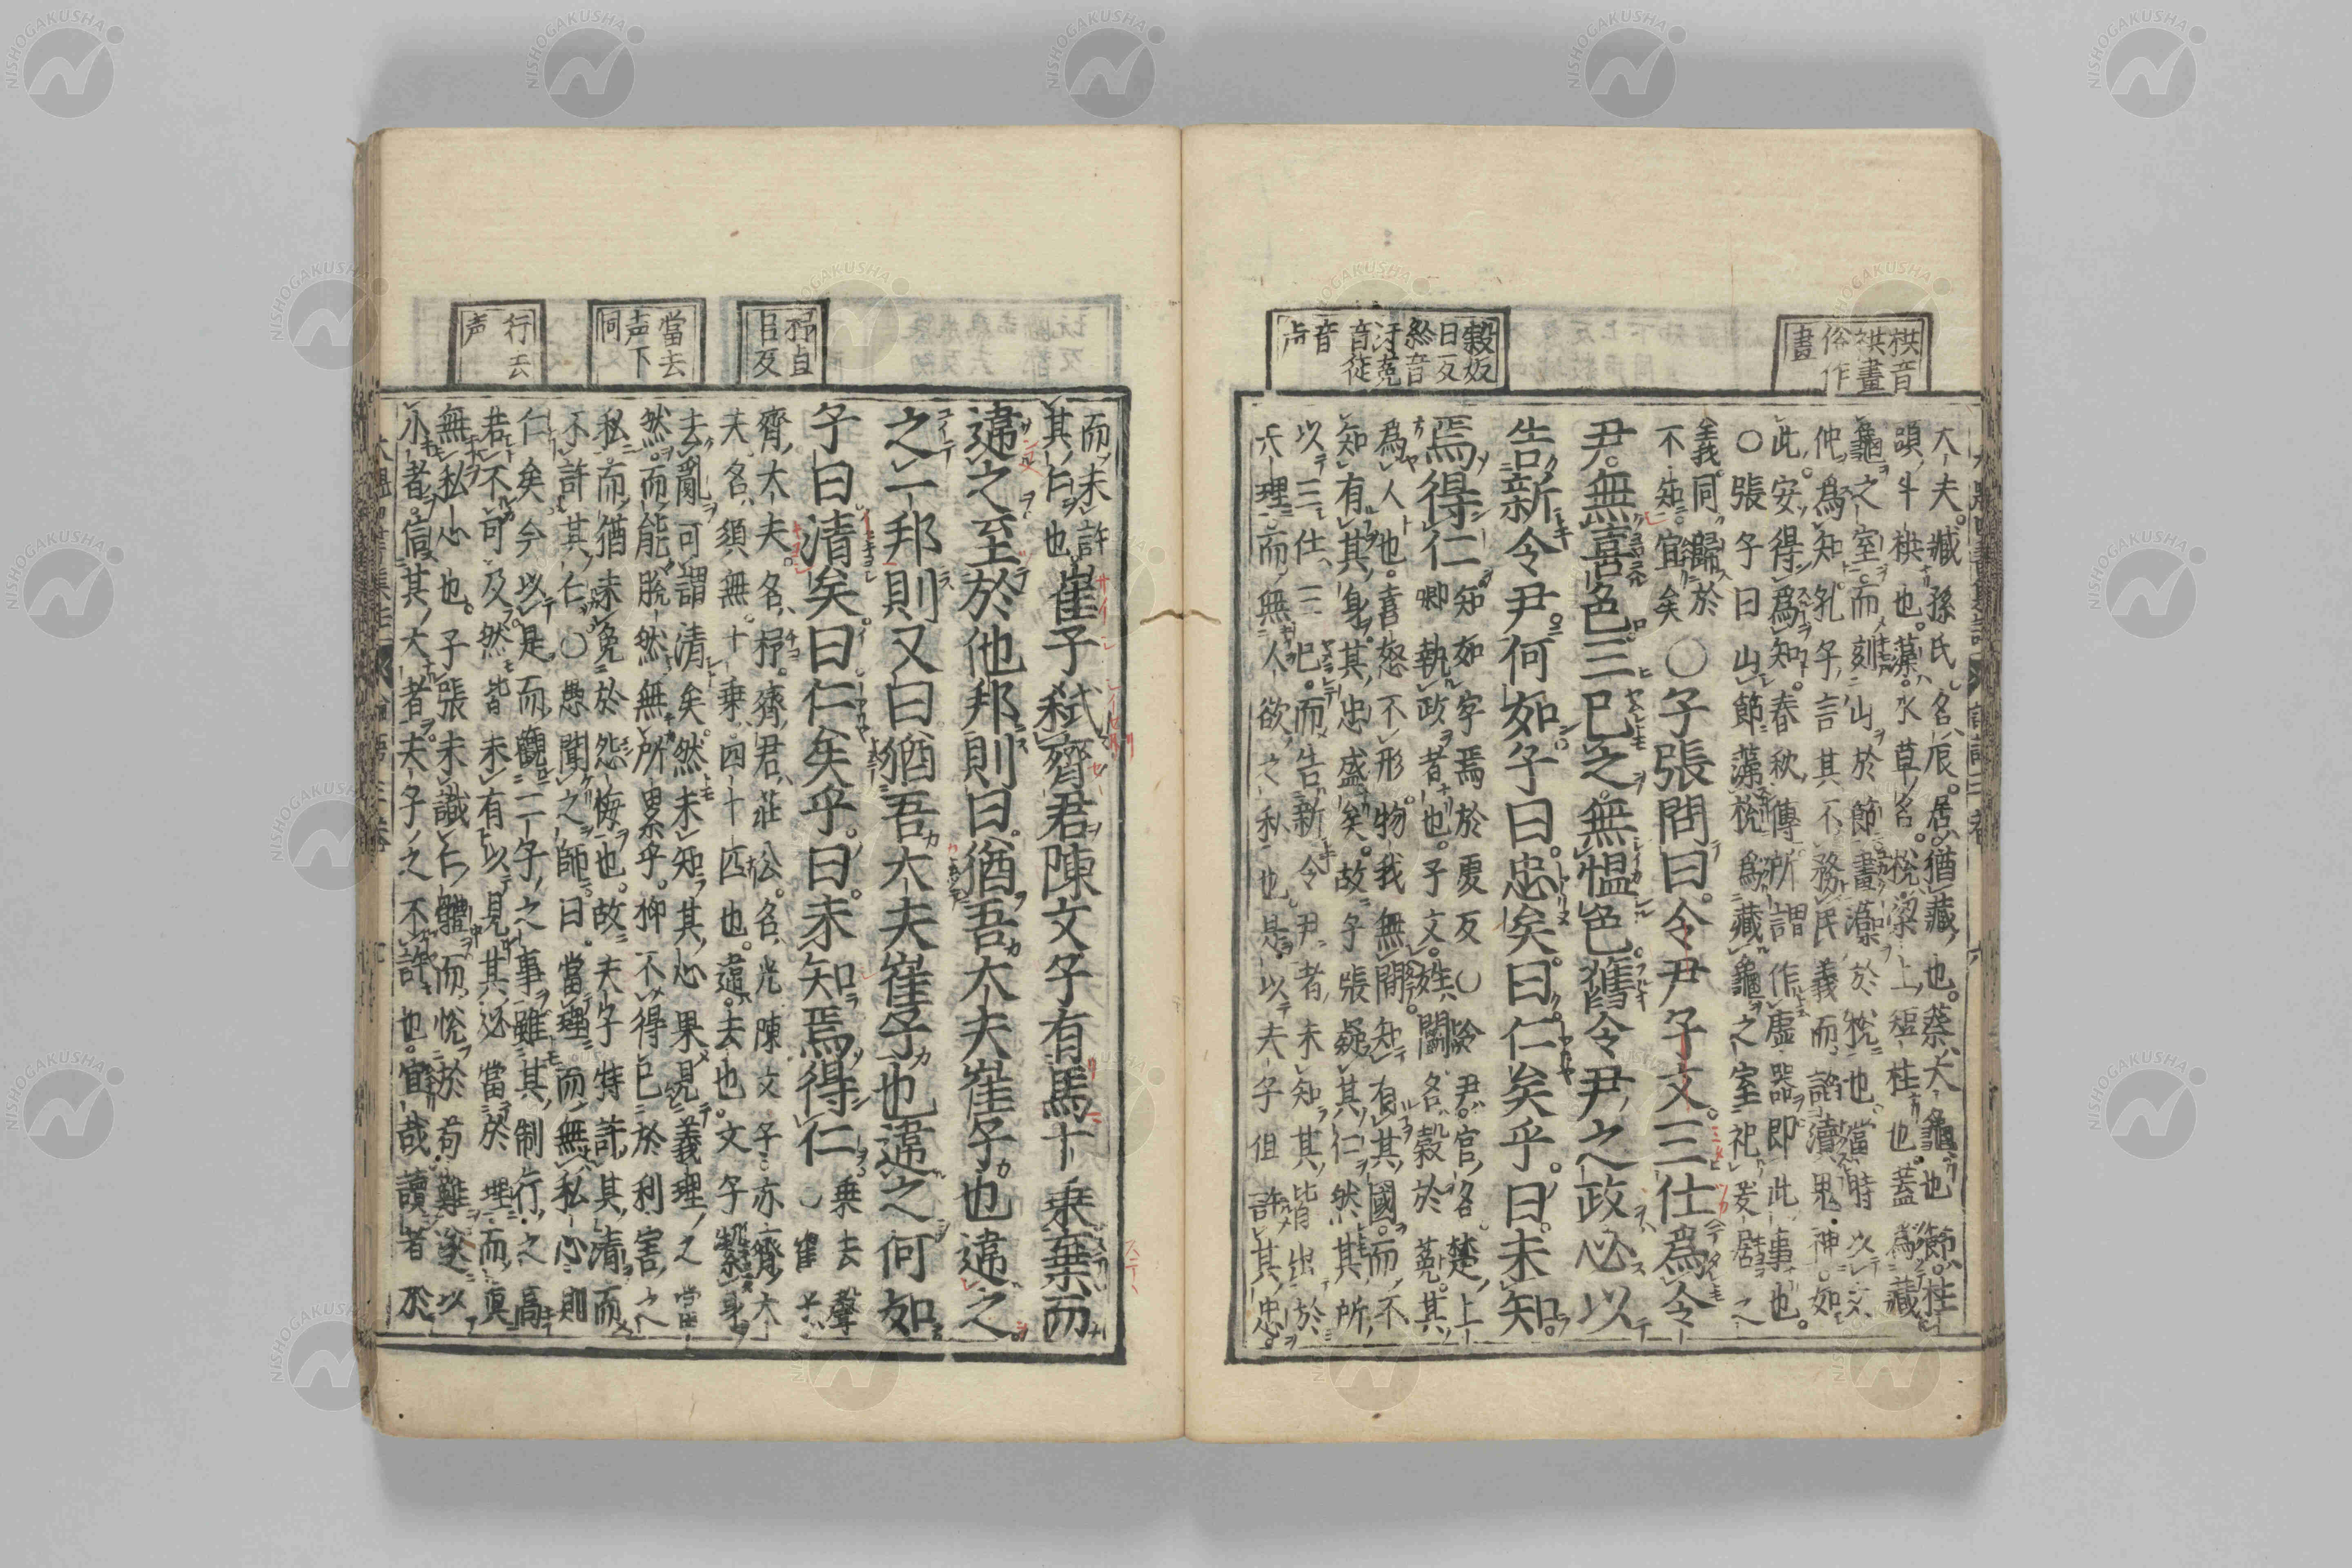 栱音
栱畫
俗作
畫
大夫臧孫氏名辰居猶藏也蔡大龜也節柱
頭斗栱也藻水草名梲梁上短柱也蓋爲藏
龜之室而刻山於節畫藻於梲也當時以文
仲爲知孔子言其不務民義而諂瀆鬼神如
此安得爲知春秋傳所謂作虛器即此事也
○張子曰山節藻梲爲藏龜之室祀爰居之
義同歸於
不知宜矣
○子張問曰令尹子文三仕爲令
尹無喜色三已之無慍色舊令尹之政必以
告新令尹何如子曰忠矣曰仁矣乎曰未知
焉得仁
知如字焉於虔反○令尹官名楚上
卿執政者也子文姓鬭名穀於菟其
爲人也喜怒不形物我無間知有其國而不
知有其身其忠盛矣故子張疑其仁然其所
以三仕三已而告新令尹者未知其皆出於
天理而無人欲之私也是以夫子但許其忠
穀奴
日反
於音
烏菟
音徒
音
声
而未許
其仁也
崔子弑齊君陳文子有馬十乘棄而
違之至於他邦則曰猶吾大夫崔子也違之
之一邦則又曰猶吾大夫崔子也違之何如
子曰清矣曰仁矣乎曰未知焉得仁
乗去聲
○崔子
齊大夫名杼齊君莊公名光陳文子亦齊大
夫名須無十乗四十匹也違去也文子潔身
去亂可謂清矣然未知其心果見義理之當
然而能脫然無所累乎抑不得已於利害之
私而猶未免於怨悔也故夫子特許其清而
不許其仁○愚聞之師曰當理而無私心則
仁矣今以是而觀二子之事雖其制行之高
若不可及然皆未有以見其必當於理而眞
無私心也子張未識仁體而悅於苟難遂以
小者信其大者夫子之不許也宜哉讀者於
杼直
呂反
當去
声下
同
行去
声